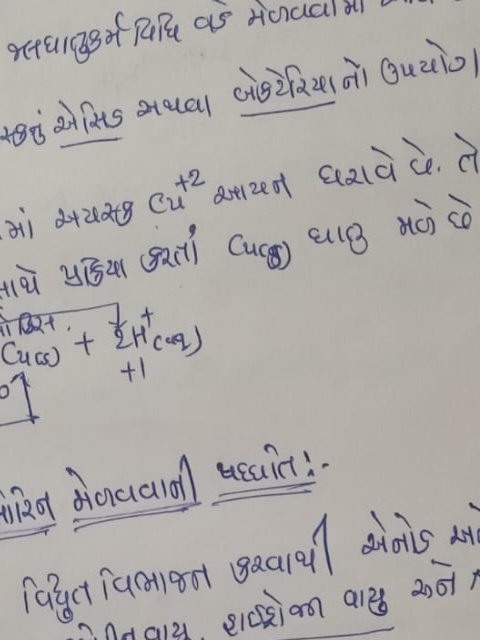 જલધાતુકર્મ વિધિ વડે મેળવવામાં
એસિડ અથવા બેક્ટેરિયાનો ઉપયોગ
માં અયસ્ક Cu+2 આયન ધરાવે છે. તે
સાથે પ્રક્રિયા કરતાં Cu(s) ધાતુ મળે છે
Cu(s) + 2H+(aq)
+1
મેળવવાની પધ્ધતિ:-
વિદ્યુત વિભાજન કરવાથી એનોડ
વાયુ, હાઈડ્રોજન વાયુ અને